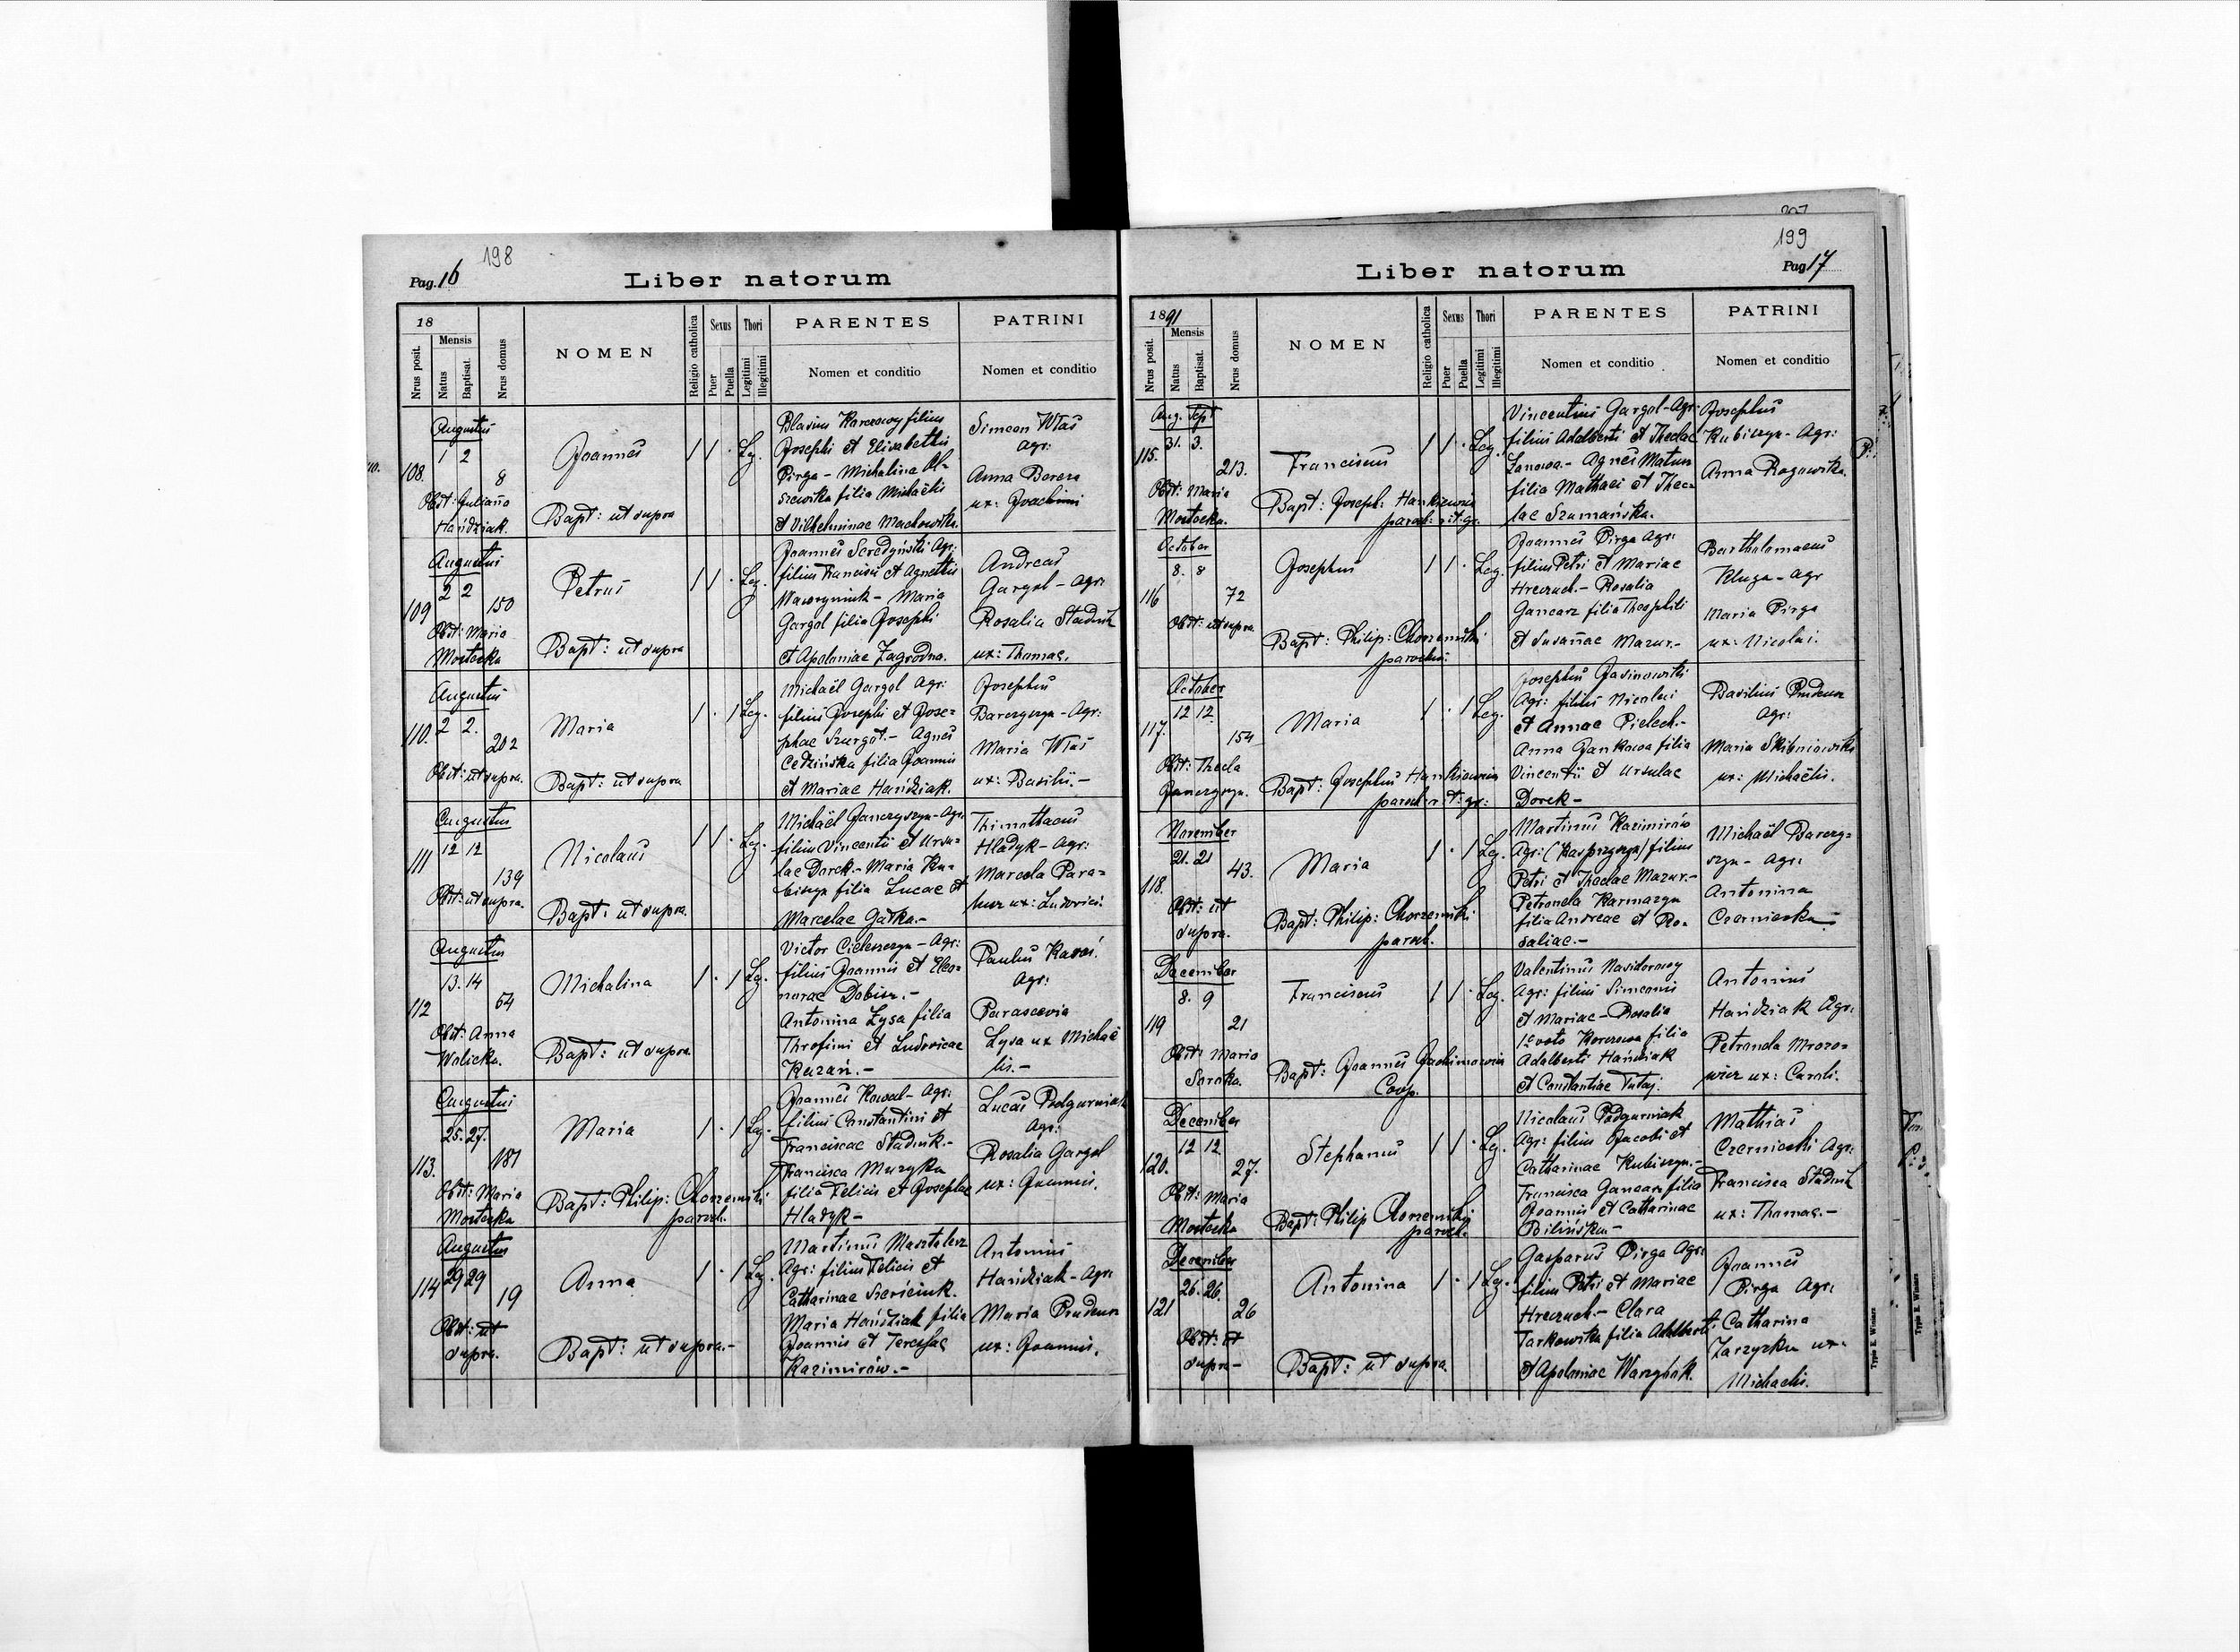 198
Pag. 16
Liber natorum
18
Mensis
Nrus posit.
Natus
Baptisat.
Nrus domus
NOMEN
Religio catholica
Sexus
Puer
Puella
Thori
Legitimi
Illegitimi
PARENTES
Nomen et conditio
PATRINI
Nomen et conditio
Augustus
1 2
108. 8
Obst: Juliana
Hańdziak.
Joannes
Bapt: ut supra
1 1 · Leg.
Blasius Karasowy filius
Josephi et Elisabethis
Pirga - Michalina Ol-
szewska filia Michaëlis
et Vilhelminae Machowska.
Simeon Wlas
agr:
Anna Barera
ux: Joachimi
Augustus
2 2
109 150
Obst: Maria
Mostecka
Petrus
Bapt: ut supra
1 1 · Leg.
Joannes Seredyński Agr:
filius Francisci et Agnethis
Wawryniuk - Maria
Gargol filia Josephi
et Apoloniae Zagrodna.
Andreas
Gargol - agr:
Rosalia Stadnik
ux: Thomae.
Augustus
2 2.
110. 202
Obst: ut supra.
Maria
Bapt: ut supra
1 · 1 Leg.
Michaël Gargol Agr:
filius Josephi et Jose=
phae Szurgot.- Agnes
Cedzińska filia Joannis
et Mariae Hańdziak.
Josephus
Barczyszyn - Agr:
Maria Wlas
ux: Basilii.-
Augustus
12 12
111 139
Obst: ut supra.
Nicolaus
Bapt: ut supra.
1 1 · Leg.
Michaël Janczyszyn - Agr:
filius Vincentii et Ursu=
lae Dorek.- Maria Ku=
biszyn filia Lucae et
Marcelae Gałka.-
Thimothaeus
Hladyk - Agr:
Marcela Para=
ux: Ludovici.
Augustus
13. 14
112 64
Obst: Anna
Wolicka.
Michalina
Bapt: ut supra.
1 · 1 Leg.
Victor Cieleszczyn - Agr:
filius Joannis et Eleo=
norae Dobisz.-
Antonina Łysa filia
Throfimi et Ludovicae
Kuzań.-
Paulus
Agr:
Parascevia
Lysa ux Michaë
lis.-
Augustus
25. 27.
113. 181
Obst: Maria
Mostecka
Maria
Bapt: Philip: Chorzemski
paroch.
1 · 1 Leg.
Joannes Kowal - Agr:
filius Constantini et
Franciscae Stadnik.-
Francisca Muzyka
filia Felicis et Josephae
Hladyk -
Lucas Podgurniak
Agr:
Rosalia Gargol
ux: Joannis.
Augustus
29 29
114 19
Obst: ut
supra.
Anna
Bapt: ut supra.-
1 · 1 Leg.
Martinus Masztalerz
Agr: filius Felicis et
Catharinae
Maria Hańdziak filia
Joannis et Theresae
Kazimirów.-
Antonius
Hańdziak - Agr:
Maria Prudeus
ux: Joannis.
199
Pag 17
Liber natorum
1891
Mensis
Nrus posit.
Natus
Baptisat.
Nrus domus
NOMEN
Religio catholica
Sexus
Puer
Puella
Thori
Legitimi
Illegitimi
PARENTES
Nomen et conditio
PATRINI
Nomen et conditio
Aug. Sept
31. 3.
115. 213.
Obst: Maria
Mostecka.
Franciscus
Bapt: Joseph: Hankiewicz
paroch: rit: gr.
1 1 · Leg.
Vincentius Gargol - Agr:
filius Adalberti et Theclae
Lanowa.- Agnes Matus
filia Mathaei et Thec=
lae Szumańska.
Josephus
Kubiszyn - Agr:
Anna Rogowska.
October
8. 8
116 72
Obst: ut supra.
Josephus
Bapt: Philip: Chorzemski
parochus.
1 1 · Leg.
Joannes Pirga Agr:
filius Petri et Mariae
Hreczuch.- Rosalia
Gancarz filia Theophili
et Susannae Mazur.-
Bartholomaeus
Kluga - agr
Maria Pirga
ux: Nicolai.
October
12 12.
117. 154
Obst: Thecla
Janczyszyn.
Maria
Bapt: Josephus Hankiewicz
paroch: rit: gr:
1 · 1 Leg.
Josephus Jasinowski
Agr: filius Nicolai
et Annae Pielech.-
Anna Jankowa filia
Vincentii et Ursulae
Dorek -
Basilius Prudeus
Agr:
Maria Skibniowska
ux: Michaëlis.
November
21. 21
118. 43.
Obst: ut
supra.
Maria
Bapt: Philip: Chorzemski
paroch.
1 · 1 Leg.
Martinus Kazimirów
Agr: (Kasprzyszyn) filius
Petri et Theclae Mazur.-
Petronela Karmazyn
filia Andreae et Ro=
saliae.-
Michaël Barczy=
szyn - agr:
Antonina
Czerniecka -
December
8. 9
119 21
Obst: Maria
Soroka.
Franciscus
Bapt: Joannes Jachimowicz
Coop.
1 1 · Leg.
Valentinus Nasidorowy
Agr: filius Simeonis
et Mariae - Rosalia
1º voto Korczowa filia
Adalberti Hańdziak
et Constantiae Tutaj.
Antonius
Hańdziak Agr:
Petronela Mrozo=
wicz ux: Caroli.
December
12 12
120. 27.
Obst: Maria
Mostecka
Stephanus
Bapt: Philip Chorzemski
paroch.
1 1 · Leg.
Nicolaus Podgurniak
Agr: filius Jacobi et
Catharinae Kubiszyn.-
Francisca Gancarz filia
Joannis et Catharinae
Bilińska -
Mathias
Czerniecki Agr:
Francisca Stadnik
ux: Thomae.-
December
26. 26.
121 26
Obst: ut
supra -
Antonina
Bapt: ut supra.
1 · 1 Leg.
Gasparus Pirga Agr:
filius Petri et Mariae
Hreczuch.- Clara
Tarkowska filia Adalberti
et Apoloniae Warzybok.
Joannes
Pirga Agr:
Catharina
Zarzyzka ux:
Michaelis.
Typis E. Winiarz
Typis E. Winiarz